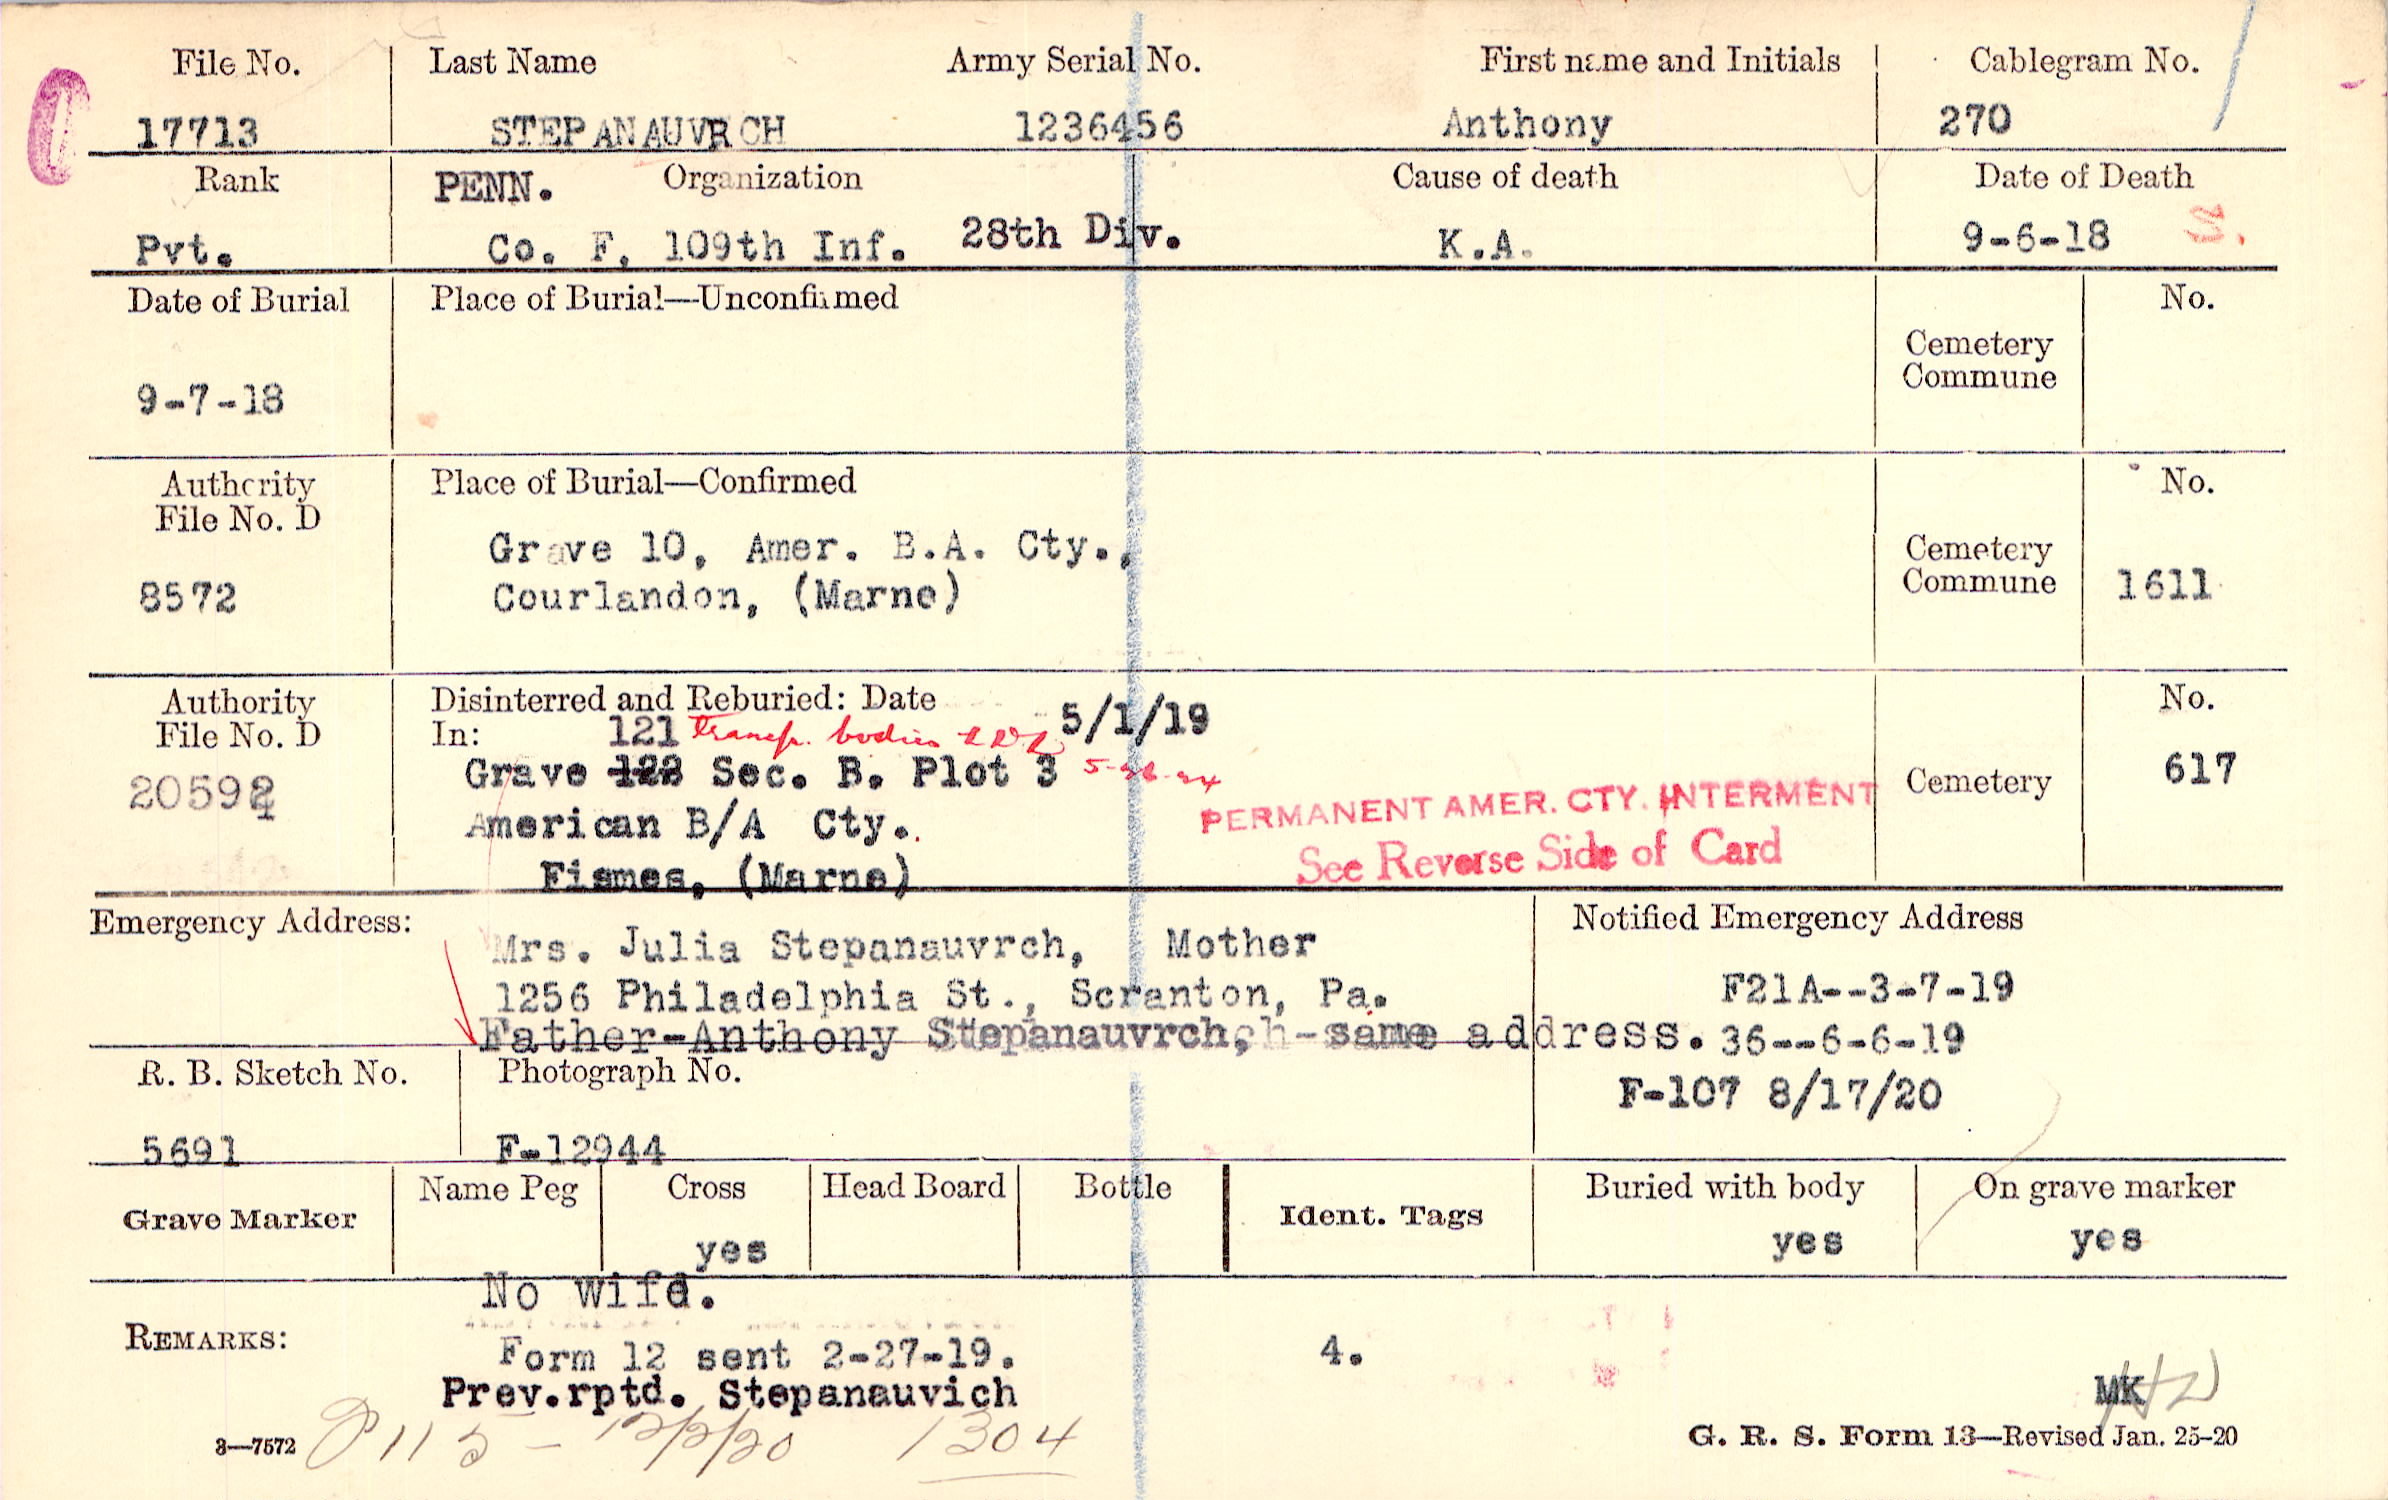 File No. Last Name Army Serial No. First name and Initials Cablegram No.
17713 STEPANAUVRCH 1236456 Anthony 270
Rank PENN. Organization Cause of death Date of Death
Pvt. Co. F, 109th Inf. 28th Div. K.A. 9-6-18 S.
Date of Burial Place of Burial—Unconfirmed No.
Cemetery
Commune
9-7-18
Authority Place of Burial—Confirmed No.
File No. D
Grave 10, Amer. B.A. Cty., Cemetery
8572 Courlandon, (Marne) Commune 1611
Authority Disinterred and Reburied: Date 5/1/19 No.
File No. D In: 121 transfr. bodies
Grave 122 Sec. B. Plot 3 Cemetery 617
American B/A Cty. PERMANENT AMER. CTY. INTERMENT
Fismes, (Marne) See Reverse Side of Card
Emergency Address: Notified Emergency Address
Mrs. Julia Stepanauvrch, Mother
1256 Philadelphia St., Scranton, Pa. F21A--3-7-19
Father-Anthony Stepanauvrch, -same address. 36--6-6-19
R. B. Sketch No. Photograph No. F-107 8/17/20
5691 F-12944
Grave Marker Name Peg Cross Head Board Bottle Ident. Tags Buried with body On grave marker
yes yes yes
No wife.
REMARKS: Form 12 sent 2-27-19. 4.
Prev.rptd. Stepanauvich MK
3—7572 1304 G. R. S. Form 13—Revised Jan. 25-20